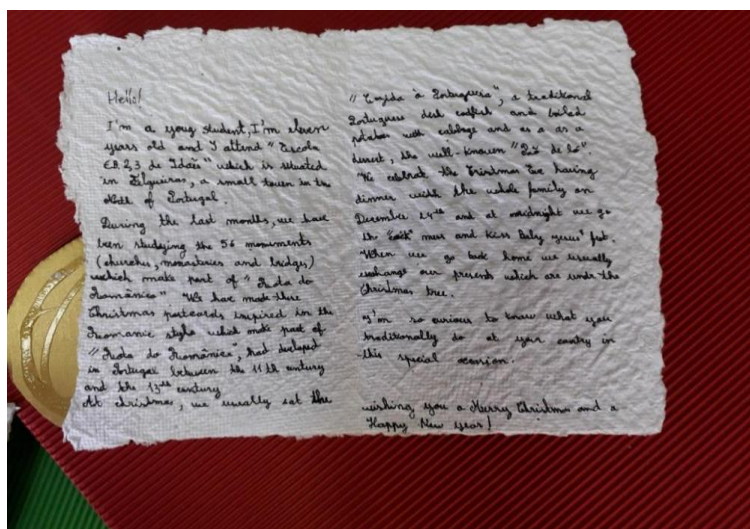 Hello!
I'm a youg student, I'm eleven
years old and I attend "Escola
E.B. 2,3 de Idães" which is situated
in Felgueiras, a small town in the
North of Portugal.
During the last months, we have
been studying the 56 monuments
(churches, monasteries and bridges)
which make part of "Rota do
Românico" We have made these
Christmas postcards inspired in the
Romanic style what make part of
"Rota do Românico", had
in Portugal between the 11th century
and the 13th century
At christmas, we usually eat the
" à Portuguesa", a traditional
Portuguese dish codfish and boiled
potatoes with cabbage and as a as a
dessert, the well-known "Pão de ló".
We celebrate the Eve having
dinner with the whole family on
December 24th and at midnight we go
the "cock" mass and kiss Baby feet.
When we go back home we usually
exchange our presents which are under the
Christmas tree.
I'm so curious to know what you
traditionally do at your country in
this special occasion.
wishing you a Merry Christmas and a
Happy New Year!